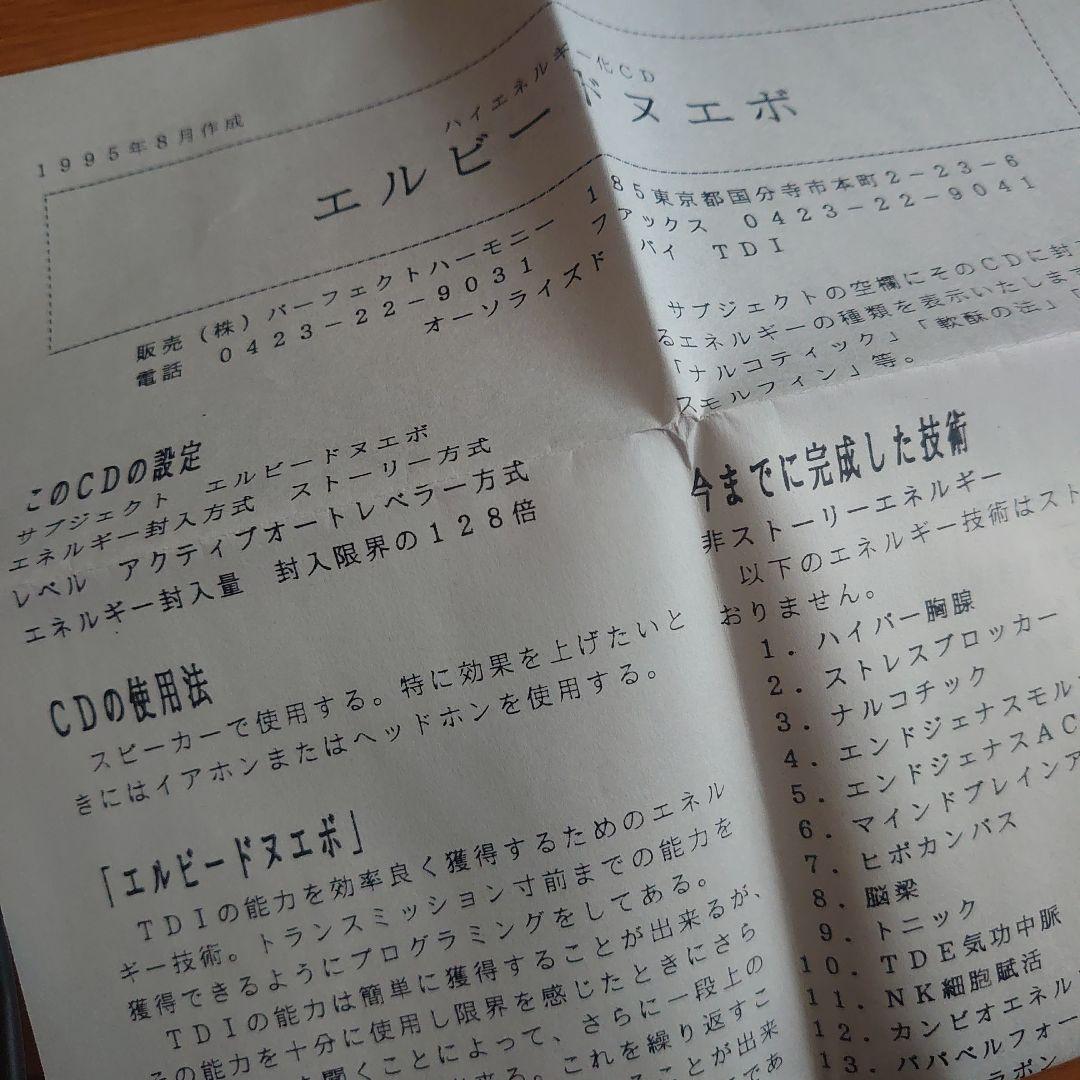 1995年8月作成
ハイエネルギー化CD
エルビードヌエボ
販売(株)パーフェクトハーモニー 185東京都国分寺市本町2-23-6
電話 0423-22-9031 ファックス 0423-22-9041
オーソライズド バイ TDI
このCDの設定
サブジェクト エルビードヌエボ
エネルギー封入方式 ストーリー方式
レベル アクティブオートレベラー方式
エネルギー封入量 封入限界の128倍
CDの使用法
スピーカーで使用する。特に効果を上げたいと
きにはイアホンまたはヘッドホンを使用する。
「エルビードヌエボ」
TDIの能力を効率良く獲得するためのエネル
ギー技術。トランスミッション寸前までの能力を
獲得できるようにプログラミングをしてある。
TDIの能力は簡単に獲得することが出来るが、
その能力を十分に使用し限界を感じたときにさら
を聞くことによって、さらに一段上の
来る。これを繰り返すこ
ることが出来
であ
サブジェクトの空欄にそのCDに封
るエネルギーの種類を表示いたします
「ナルコティック」「軟酥の法」「
スモルフィン」等。
今までに完成した技術
非ストーリーエネルギー
以下のエネルギー技術はスト
おりません。
1.ハイパー胸腺
2.ストレスブロッカー
3.ナルコチック
4.エンドジェナスモル
5.エンドジェナスAC
6.マインドブレインア
7.ヒポカンパス
8.脳梁
9.トニック
10.TDE気功中脈
11.NK細胞賦活
12.カンビオエネル
13.パパベルフォー
ラボン